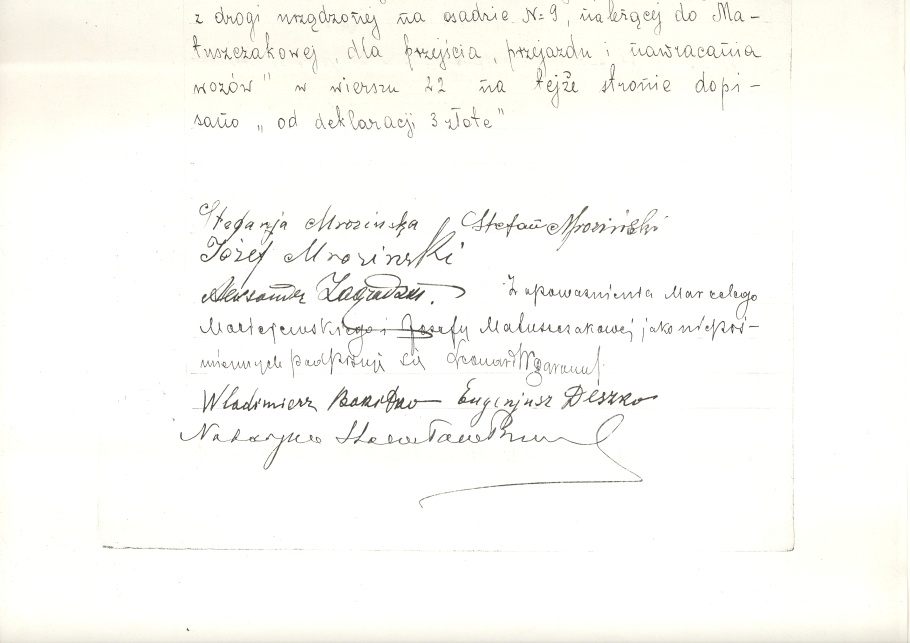 z drogi urządzonej na osadzie N=9, należącej do Ma-
tuszczakowej, dla przejścia, przejazdu i nawracania
wozów" w wierszu 22 na tejże stronie dopi-
sano „od deklaracji 3 złote"
Stefanja Mrozińska Stefan Mroziński
Józef Mroziński
Aleksander Z upoważnienia Marcelego
Maciejewskiego i Józefy Matuszczakowej jako niepiś-
miennych podpisuję się Leonard
Włodzimierz Eugenjusz Deszko
Notaryusz